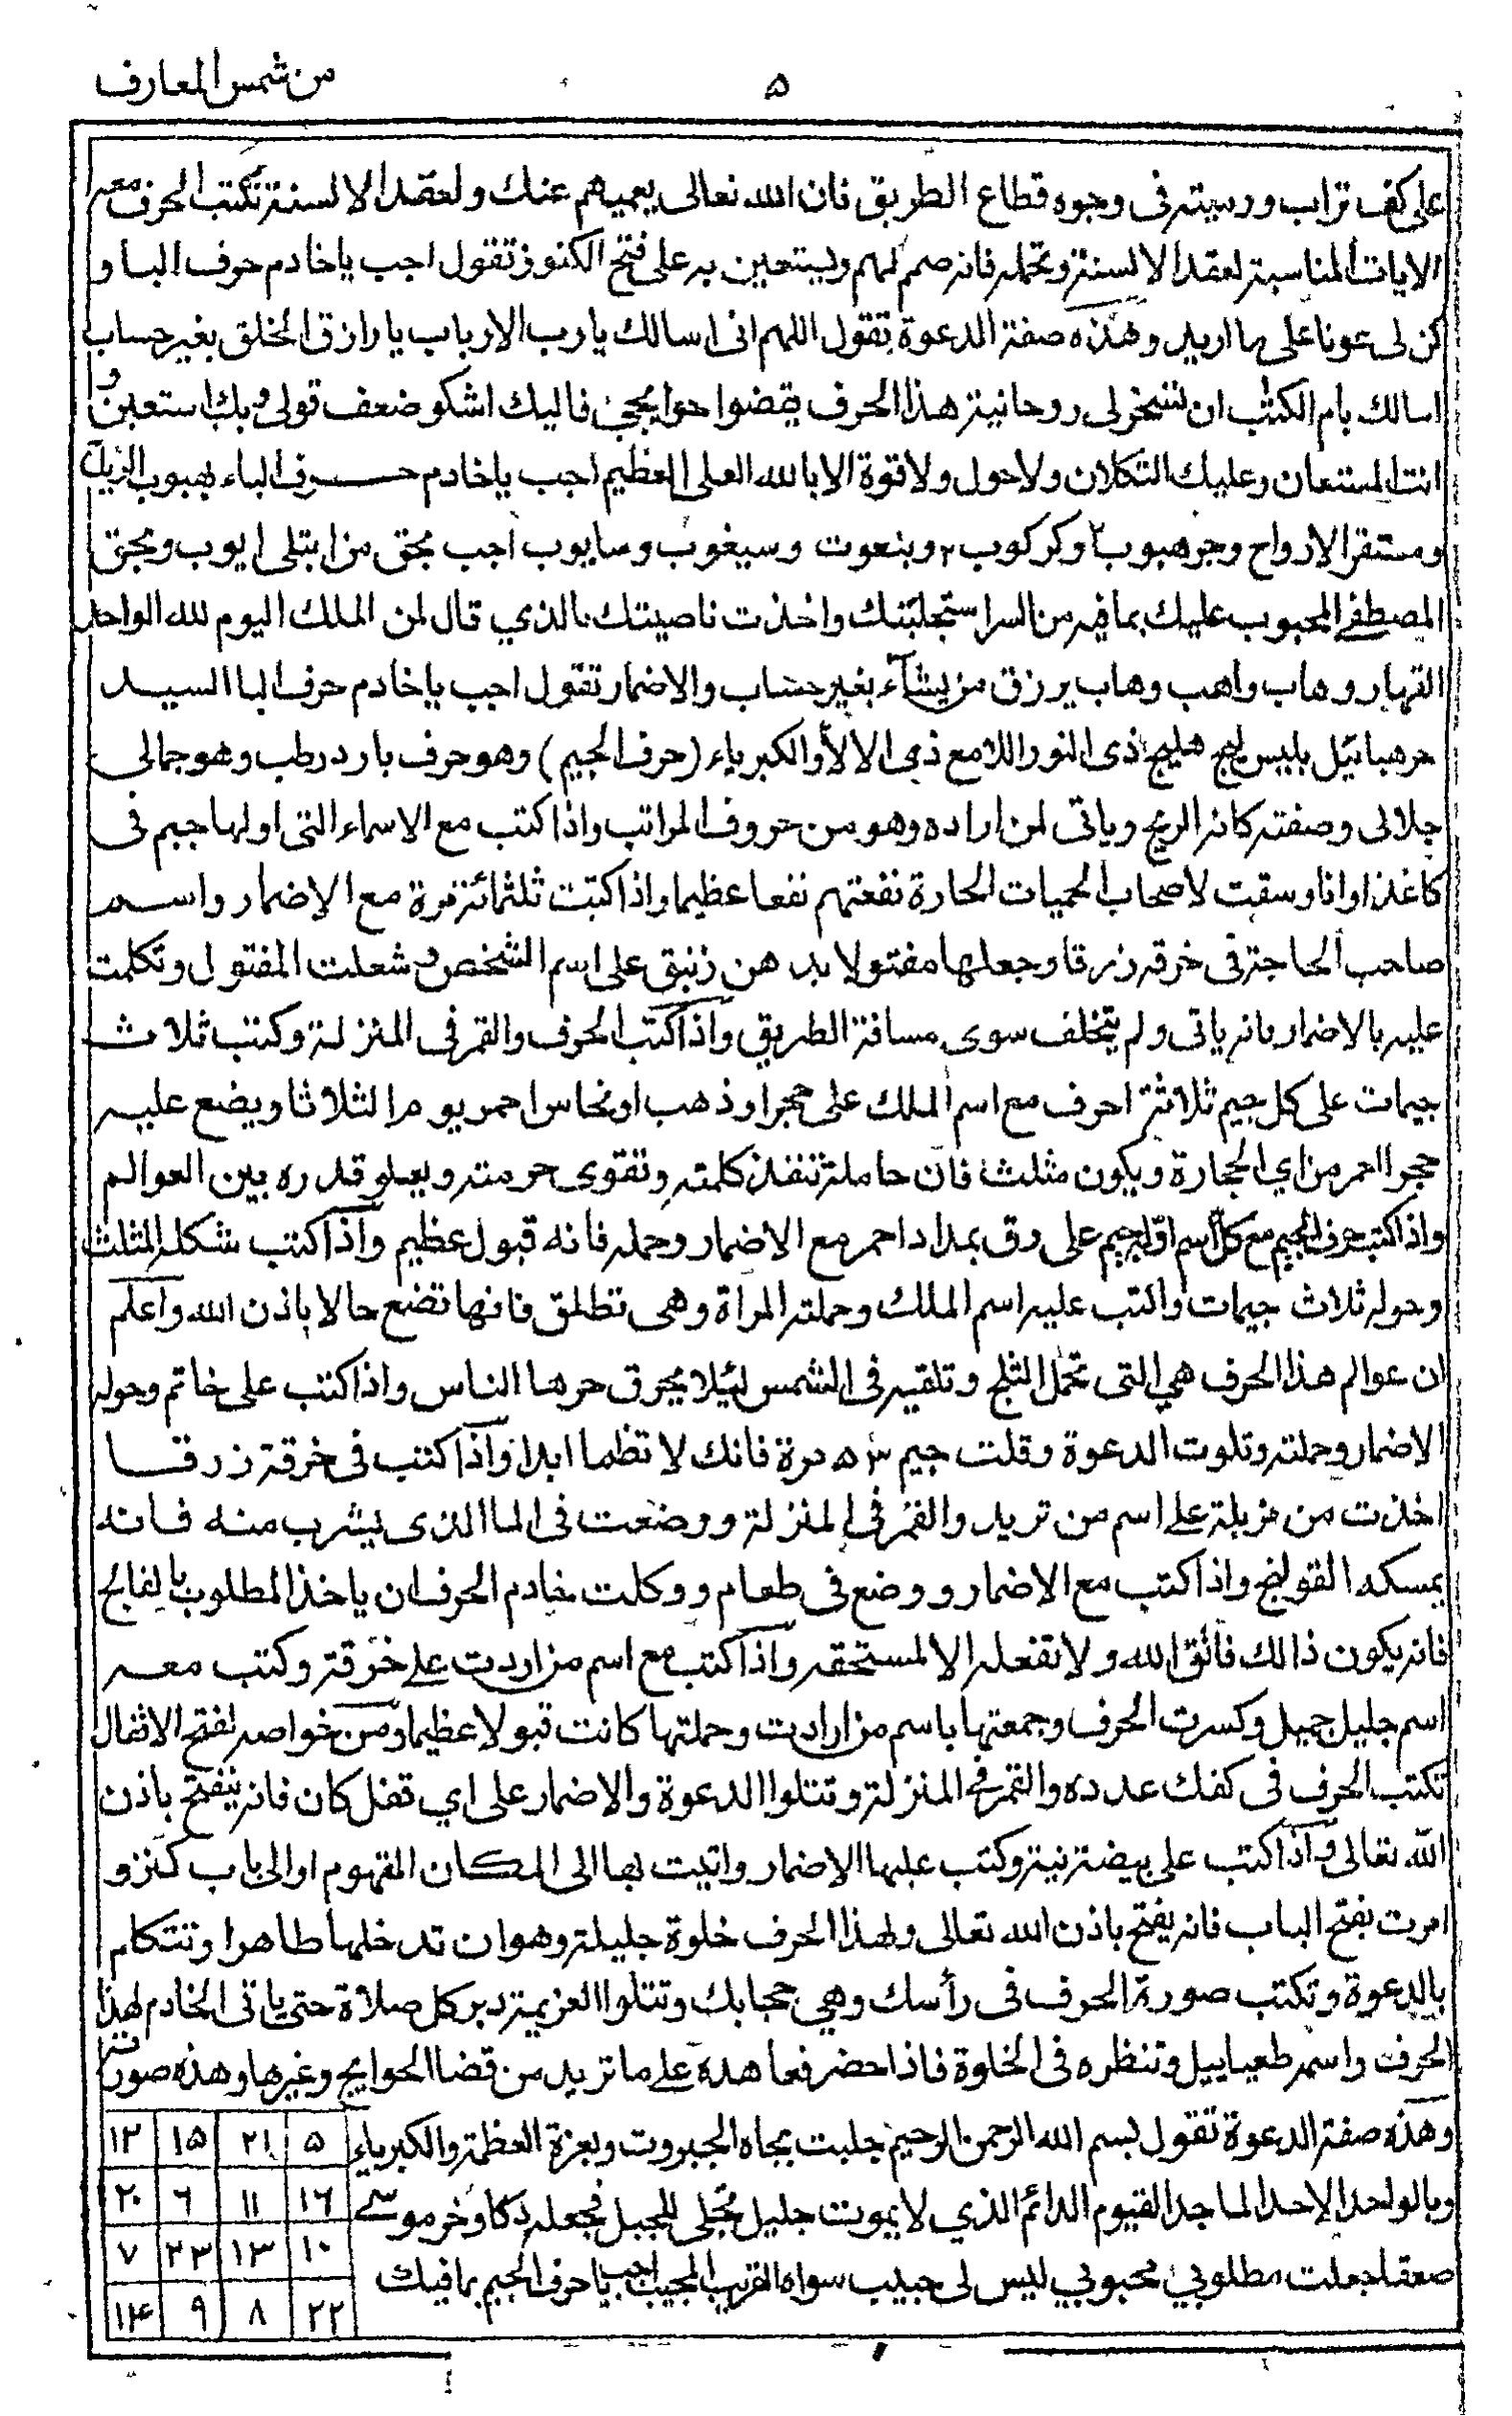 من شمس المعارف
۵
على كف تراب ورميته فى وجوه قطاع الطريق فان الله تعالى يعميهم عنك ولعقد الالسنة تكتب الحرف معه
الايات المناسبة لعقد الالسنة وتحمله فانه صمم لهم ويستعين به على فتح الكنوز تقول اجب ياخادم حرف البا و
كن لى عونا على ما اريد وهذه صفة الدعوة تقول اللهم انى اسالك يارب الارباب يا رازق الخلق بغير حساب
اسالك بام الكتب ان تسخر لى روحانية هذا الحرف يقضوا حوايجي فاليك اشكو ضعف قولى وبك استعين و
انت المستعان وعليك التكلان ولاحول ولاقوة الا بالله العلى العظيم اجب ياخادم حرف الباء بهبوب الرياح
ومستقر الارواح وجرهبوب ٢ وكركوب ٢ وبنعوت وسيغوب وسايوب اجب بحق من ابتلى ايوب وبحق
المصطفى المحبوب عليك بمافيه من السر استجلبتك واخذت ناصيتك بالذي قال لمن الملك اليوم لله الواحد
القهار وهاب واهب وهاب يرزق من يشآء بغير حساب والاضمار تقول اجب ياخادم حرف البا السيد
جرهبائيل بلبيس لهج هليج ذى النور اللامع ذى الالآ والكبرياء (حرف الجيم) وهو حرف بارد رطب وهو جمالى
جلالى وصفته كانه الريح وياتى لمن اراده وهو من حروف المراتب واذا كتب مع الاسماء التى اولها جيم فى
كاغذ او انا وسقيت لاصحاب الحميات الحارة نفعتهم نفعا عظيما واذا كتبت ثلثمائة مرة مع الاضمار واسم
صاحب الحاجة فى خرقه زرقا وجعلها مفتولا بدهن زنبق على اسم الشخص و شعلت المفتول وتكلمت
عليه بالاضمار فانه ياتى ولم يتخلف سوى مسافة الطريق واذا كتب الحرف والقمر فى المنزلة وكتب ثلاث
جيمات على كل جيم ثلاثة احرف مع اسم الملك على حجر او ذهب او نحاس احمر يوم الثلاثا ويضع عليه
حجرا احمر من اي الحجارة ويكون مثلث فان حامله تنفذ كلمته وتقوى حرمته ويعلو قدره بين العوالم
واذ اكتب حرف الجيم مع كل اسم اوله جيم على رق بمداد احمر مع الاضمار وحمله فانه قبول عظيم واذا كتب شكله المثلث
وحوله ثلاث جيمات واكتب عليه اسم الملك وحملته المراة وهى تطلق فانها تضع حالا باذن الله واعلم
ان عوالم هذا الحرف هي التى تحمل الثلج وتلقيه فى الشمس لئيلا يحرق حرها الناس واذا كتب على خاتم وحوله
الاضمار وحملته وتلوت الدعوة وقلت جيم ۵۳ مرة فانك لا تظما ابدا واذا كتب فى خرقة زرقا
اخذت من مزبلة على اسم من تريد والقمر فى المنزلة ووضعت فى الما الذى يشرب منه فانه
يمسكه القولنج واذا كتب مع الاضمار ووضع فى طعام ووكلت خادم الحرف ان ياخذ المطلوب بالفالج
فانه يكون ذالك فاتق الله ولا تفعله الا لمستحقه واذا كتب مع اسم من اردت على خرقة وكتب معه
اسم جليل جميل وكسرت الحرف وجمعتها باسم من اردت وحملتها كانت قبولا عظيما ومن خواصه لفتح الاقفال
تكتب الحرف فى كفك عدده والقمر فى المنزلة وتتلوا الدعوة والاضمار على اي قفل كان فانه ينفتح باذن
الله تعالى واذا كتب على بيضة نية وكتب عليها الاضمار واتيت بها الى المكان المفهوم او الى باب كنز و
امرت بفتح الباب فانه يفتح باذن الله تعالى ولهذا الحرف خلوة جليلة وهو ان تدخلها طاهرا وتتكلم
بالدعوة وتكتب صورة الحرف فى رأسك وهي حجابك وتتلوا العزيمة دبر كل صلاة حتى ياتى الخادم لهذا
الحرف واسمه طعياييل وتنظره فى الخلوة فاذا حضر فعاهده على ما تريد من قضا الحوايج وغيرها وهذه صورته
وهذه صفة الدعوة تقول بسم الله الرحمن الرحيم جلبت بجاه الجبروت وبعزة العظمة والكبرياء
وبالواحد الاحد الماجد القيوم الدائم الذي لا يموت جليل تجلى للجبل فجعله دكا وخر موسى
صعقا جعلت مطلوبي محبوبي ليس لى حبيب سواه القريب المجيب اجب ياحرف الجيم بما فيك
۵ ٢١ ۱۵ ١٢
١٦ ١١ ٦ ٢٠
١٠ ١٣ ٢٣ ٧
٢٢ ٨ ٩ ۱۴